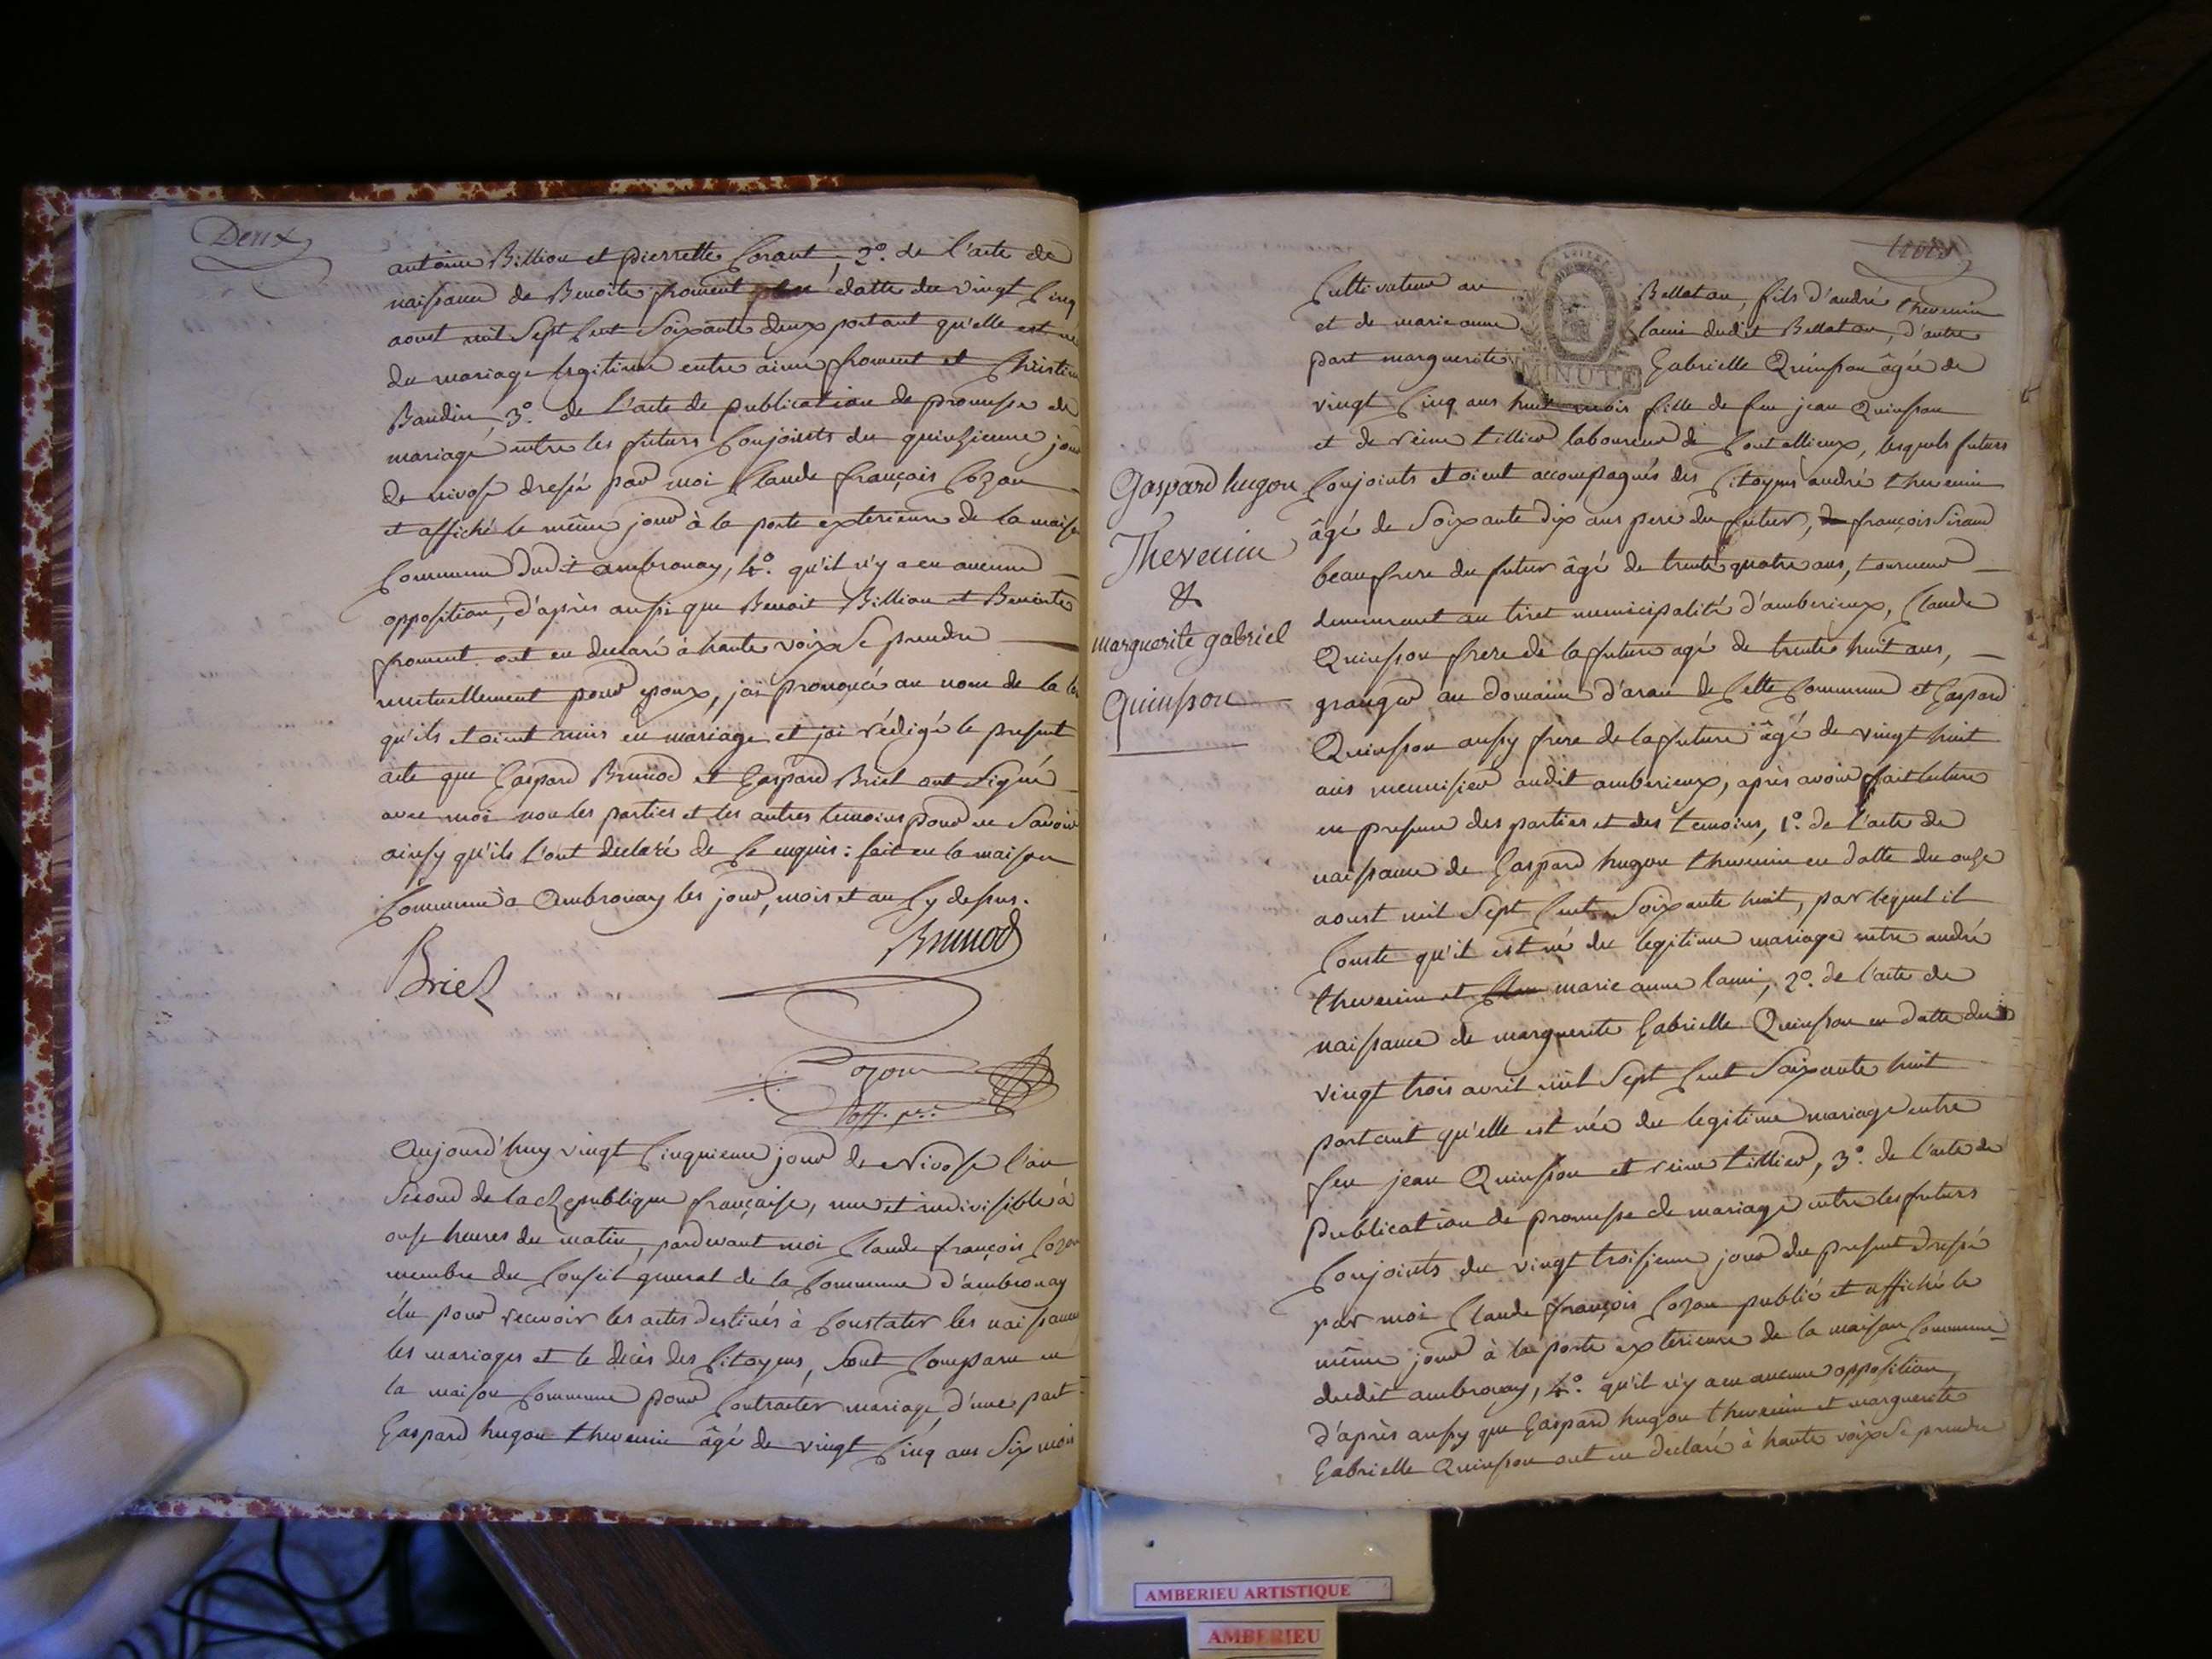 Deux
antoine Billion et pierrette Corant, 2°. de l'acte de
naissance de Benoite froment datte du vingt cinq
aoust mil sept cent soixante deux portant qu'elle est née
du mariage legitime entre aimé froment et Christine
Baudin 3°. de l'acte de publication de promesse de
mariage entre les futurs conjoints du quinzieme jour
de nivose dressé par moi Claude françois Cozon
et affiché le même jour à la porte exterieure de la maison
commune dudit ambronay, 4°. qu'il n'y a eu aucune
opposition, d'après aussi que Benoit Billion et Benoite
froment ont eu declaré à haute voix se prendre
mutuellement pour epoux, jai prononcé au nom de la loi
qu'ils etoient unis en mariage et jai rédigé le present
acte que Gaspard Brunod et Gaspard Briel ont signé
avec moi non les parties et les autres temoins pour ne savoir
ainsy qu'ils l'ont declaré de ce enquis : fait en la maison
commune a Ambronay les jour, mois et an cy dessus.
Brunod
Briel
Cozon
off. p.er
Aujourd'huy vingt cinquieme jour de Nivose l'an
second de la Republique française, une et indivisible à
onze heures du matin, pardevant moi Claude françois Cozon
membre du Conseil general de la Commune d'ambronay
élu pour recevoir les actes destinés à constater les naissances
les mariages et le décès des Citoyens, sont comparu en
la maison commune pour contracter mariage, d'une part
Gaspard hugon thevenin âgé de vingt cinq ans six mois
trois
MINUTE
Cultivateur au Bellaton, fils d'andré thevenin
et de marie anne lami dudit Bellaton, d'autre
part marguerite Gabrielle Quinsson âgée de
vingt cinq ans huit mois fille de feu jean Quinsson
et de reine tillier laboureur de Coutellieux, lesquels futurs
conjoints etoient accompagnés des Citoyens andré thevenin
âgé de soixante dix ans pere du futur, françois Siraud
beaufrere du futur âgé de trente quatre ans, tourneur
demeurant au tiret municipalité d'amberieux, Claude
Quinsson frere de la future agé de trente huit ans,
granger au domaine d'aran de cette commune et Gaspard
Quinsson aussy frère de la future âgé de vingt huit
ans menuisier audit amberieux, après avoir fait lecture
en presence des parties et des temoins, 1°. de l'acte de
naissance de Gaspard hugon thevenin en datte du onze
aoust mil sept cent soixante huit, par lequel il
conste qu'il est né du legitime mariage entre andré
thevenin et marie anne lami, 2°. de l'acte de
naissance de marguerite Gabrielle Quinsson en datte du
vingt trois avril mil sept cent soixante huit
portant qu'elle est née du legitime mariage entre
feu jean Quinsson et reine tillier, 3°. de l'acte de
publication de promesse de mariage entre les futurs
conjoints du vingt troisieme jour du present dressé
par moi Claude françois Cozon publié et affiché le
même jour à la porte exterieure de la maison commune
dudit ambronay, 4°. qu'il n'y a eu aucune opposition,
d'après aussy que Gaspard hugon thevenin et marguerite
Gabrielle Quinsson ont eu declaré à haute voix se prendre
Gaspard hugon
Thevenin
&
marguerite gabriel
Quinsson
AMBERIEU ARTISTIQUE
AMBERIEU